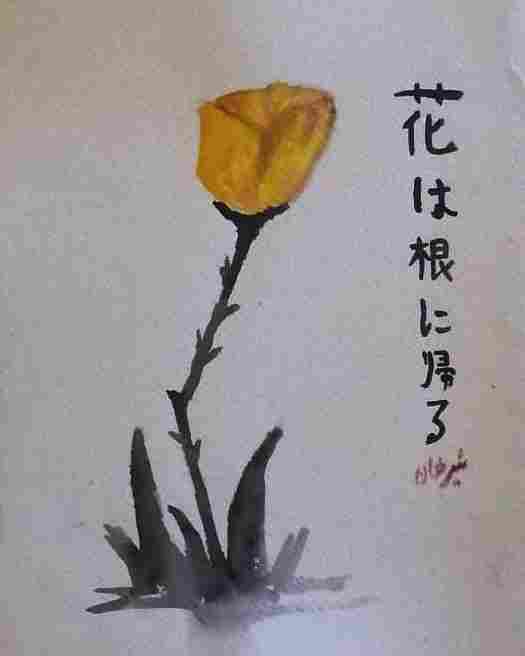 花は根に帰る